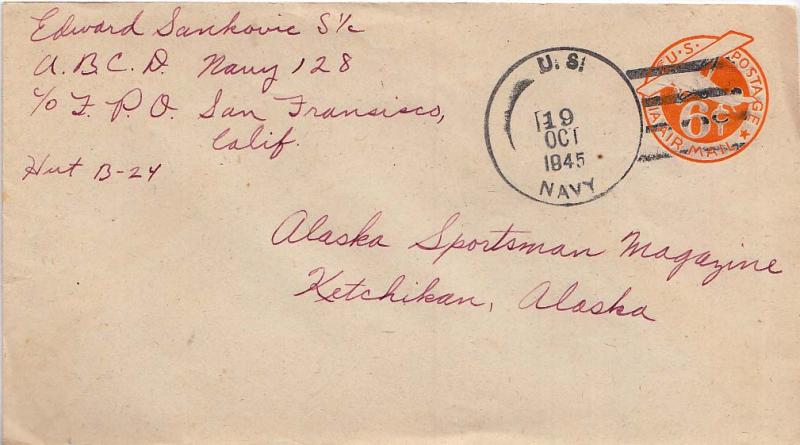 Edward Sankovic S1/c
A.B.C.D. Navy 128
c/o F.P.O. San Fransisco,
Calif.
Hut B-24
U.S.
19
OCT
1945
NAVY
U.S. POSTAGE
6¢
VIA AIR MAIL
Alaska Sportsman Magazine
Ketchikan, Alaska